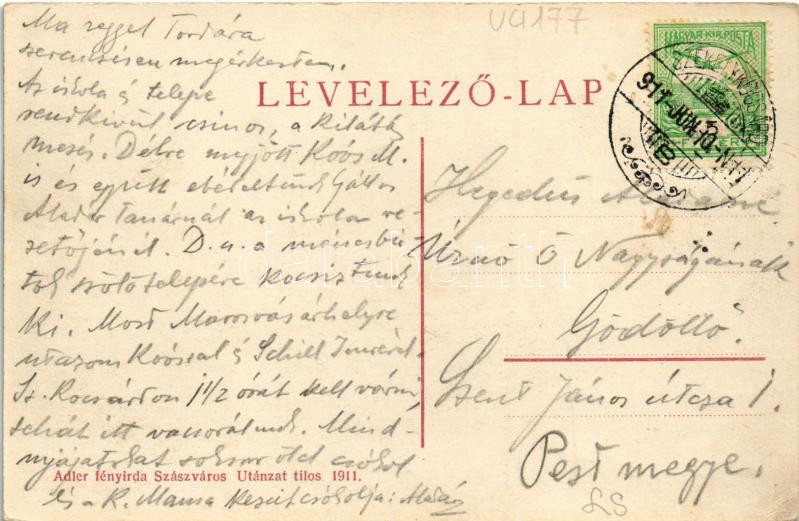 VU177
Ma reggel Tordára
szerencsésen megérkeztem.
Az iskola és telepe
rendkívül csinos, a kilátás
mesés. Délre megjött Koós M.
is és együtt ebédeltünk Gállos
Aladár tanárnál az iskola ve-
zetőjénél. D. u. a
szőlőtelepére kocsiztunk
ki. Most Marosvásárhelyre
utazom Koóssal és Schill Imrével.
Sz. Kocsárdon 1 1/2 órát kell várni,
tehát itt vacsorálunk. Mind-
nyájatokat sokszor ölel csókol
és a K. Mama kezeit csókolja: Aladár
Adler fényirda Szászváros Utánzat tilos 1911.
LEVELEZŐ-LAP
MAGYAR KIR. POSTA
911 JUN 10
Hegedüs
Úrnő Ő Nagyságának
Gödöllő.
Szent János útcza 1.
Pest megye.
LS
darabanth